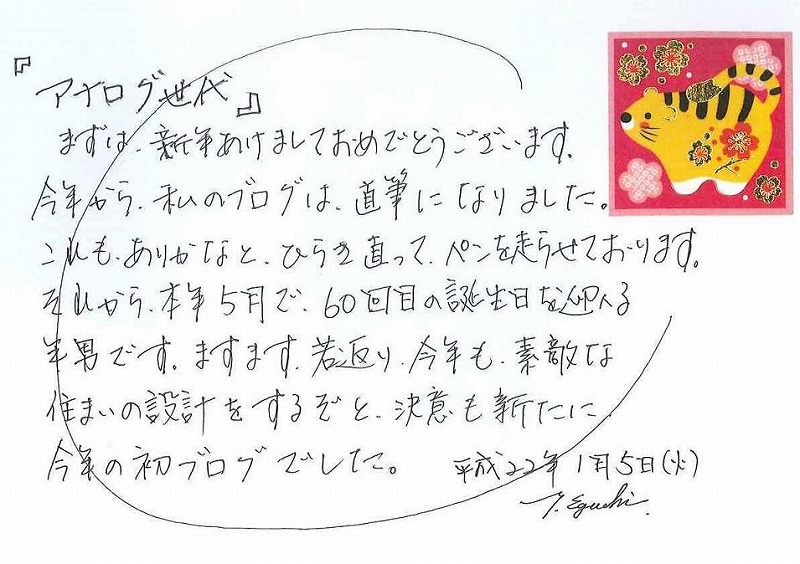 『アナログ世代』
まずは、新年あけましておめでとうございます。
今年から、私のブログは、直筆になりました。
これも、ありかなと、ひらき直って、ペンを走らせております。
それから、本年5月で、60回目の誕生日を迎える
年男です。ますます、若返り、今年も、素敵な
住まいの設計をするぞと、決意も新たに、
今年の初ブログでした。 平成22年1月5日(火)
Y. Eguchi.